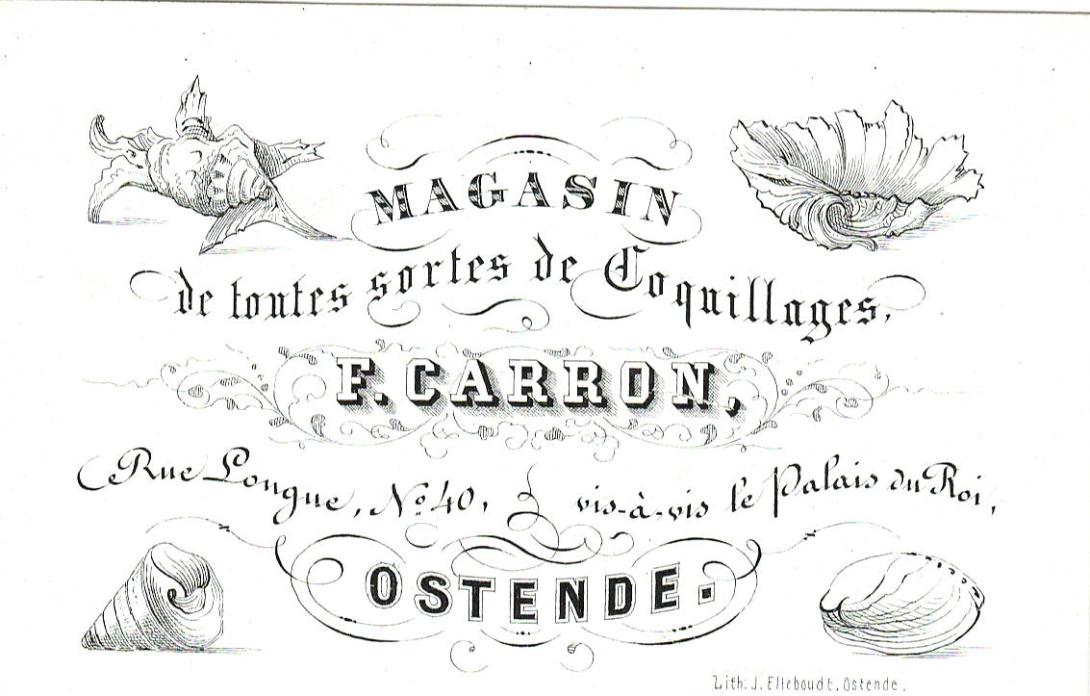 MAGASIN
de toutes sortes de Coquillages,
F. CARRON,
Rue Longue, No 40, vis-à-vis le Palais du Roi,
OSTENDE.
Lith: J. Elleboudt, Ostende.